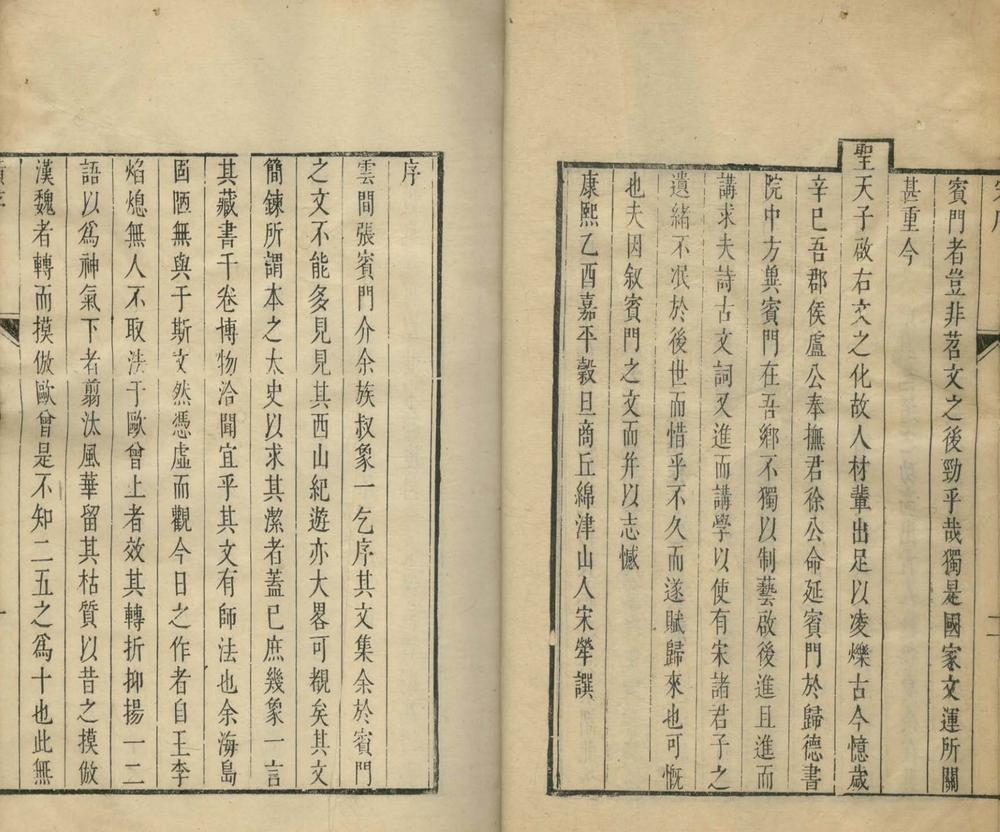 賓門者豈非茗文之後勁乎哉獨是國家文運所關
甚重今
聖天子啟右文之化故人材輩出足以凌爍古今憶歲
辛巳吾郡侯盧公奉撫君徐公命延賓門於歸德書
院中方兾賓門在吾鄉不獨以制藝啟後進且進而
講求夫詩古文詞又進而講學以使有宋諸君子之
遺緒不泯於後世而惜乎不久而遂賦歸來也可慨
也夫因叙賓門之文而幷以志憾
康熙乙酉嘉平穀旦商丘綿津山人宋犖譔
序
雲間張賓門介余族叔象一乞序其文集余於賓門
之文不能多見見其西山紀遊亦大畧可覩矣其文
簡鍊所謂本之太史以求其潔者蓋已庶幾象一言
其藏書千卷博物洽聞宜乎其文有師法也余海島
固陋無與于斯文然憑虛而觀今日之作者自王李
焰熄無人不取法于歐曾上者效其轉折抑揚一二
語以爲神氣下者翦汰風華留其枯質以昔之摸倣
漢魏者轉而摸倣歐曾是不知二五之爲十也此無